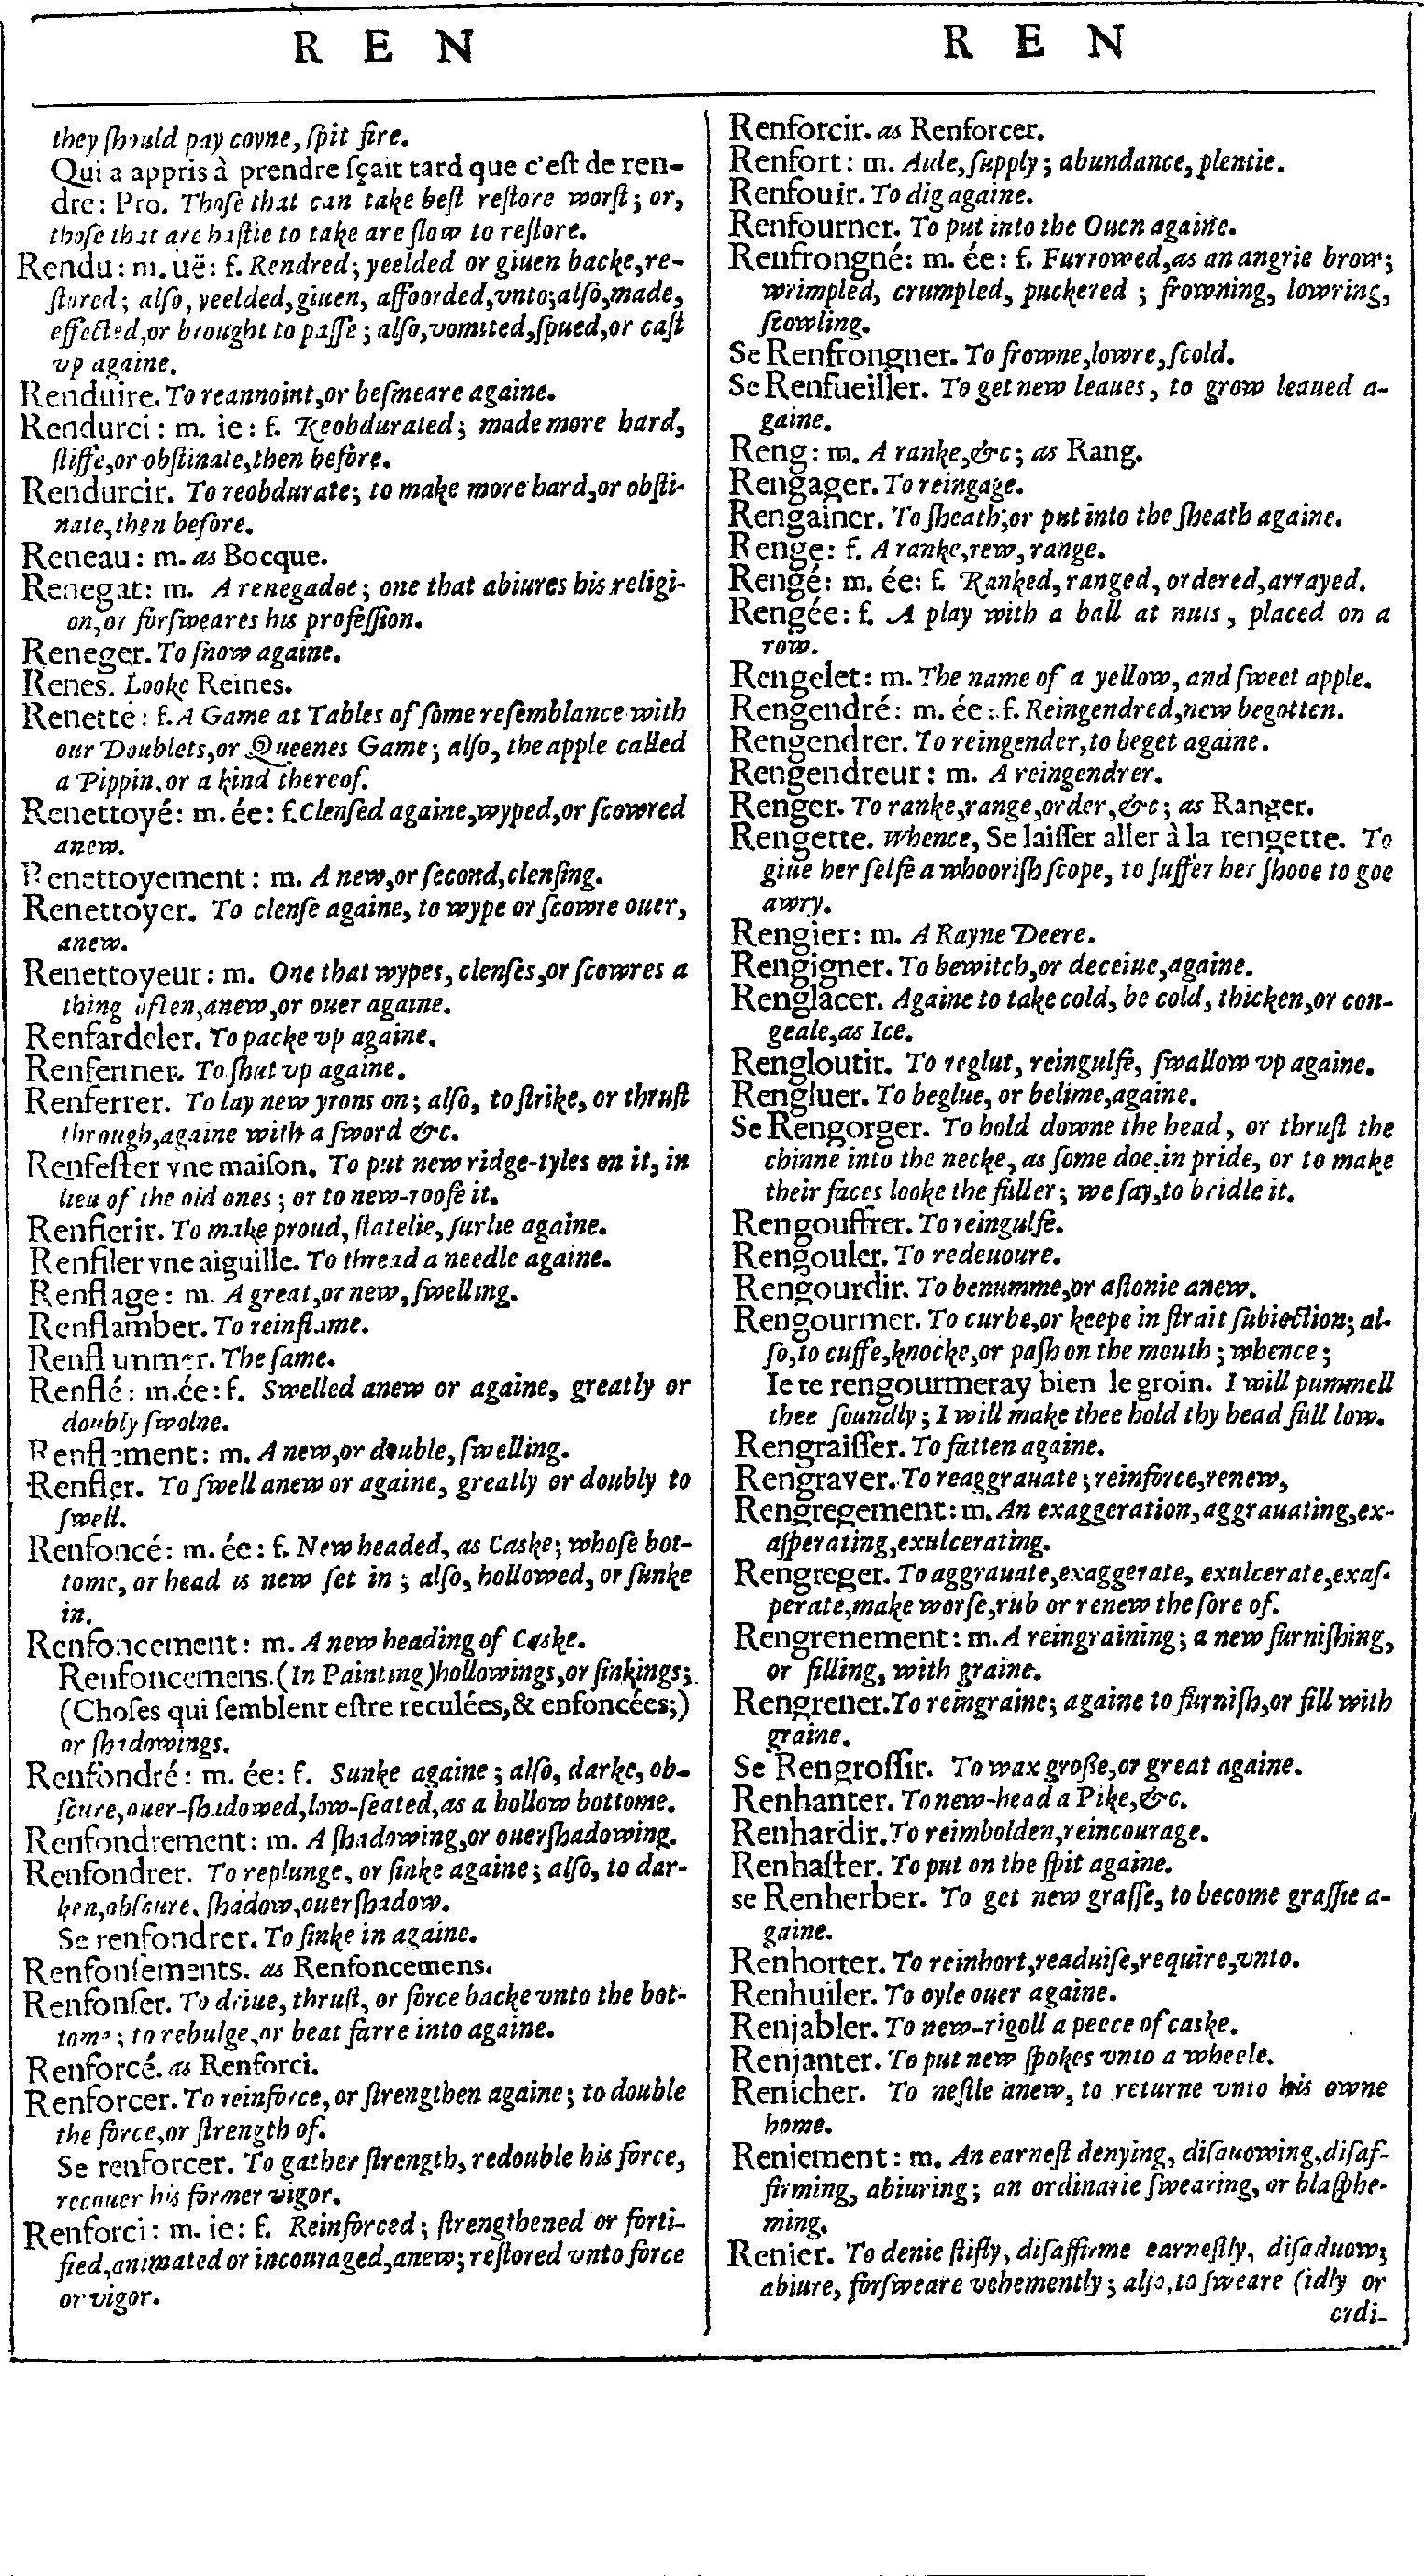 R E N
they ſhould pay coyne, ſpit fire.
Qui a appris à prendre ſçait tard que c'eſt de ren-
dre: Pro. Thoſe that can take beſt reſtore worſt; or,
thoſe that are haſtie to take are ſlow to reſtore.
Rendu: m. uë: f. Rendred; yeelded or giuen backe, re-
ſtored; alſo, yeelded, giuen, affoorded, vnto; alſo, made,
effected, or brought to paſſe; alſo, vomited, ſpued, or caſt
vp againe.
Renduire. To reannoint, or beſmeare againe.
Rendurci: m. ie: f. Reobdurated; made more hard,
ſtiffe, or obſtinate, then before.
Rendurcir. To reobdurate; to make more hard, or obſti-
nate, then before.
Reneau: m. as Bocque.
Renegat: m. A renegadoe; one that abiures his religi-
on, or forſweares his profeſſion.
Reneger. To ſnow againe.
Renes. Looke Reines.
Renette: f. A Game at Tables of ſome reſemblance with
our Doublets, or Queenes Game; alſo, the apple called
a Pippin, or a kind thereof.
Renettoyé: m. ée: f. Clenſed againe, wyped, or ſcowred
anew.
Renettoyement: m. A new, or ſecond, clenſing.
Renettoyer. To clenſe againe, to wype or ſcowre ouer,
anew.
Renettoyeur: m. One that wypes, clenſes, or ſcowres a
thing often, anew, or ouer againe.
Renfardeler. To packe vp againe.
Renfermer. To ſhut vp againe.
Renferrer. To lay new yrons on; alſo, to ſtrike, or thruſt
through, againe with a ſword &c.
Renfeſter vne maiſon. To put new ridge-tyles on it, in
lieu of the old ones; or to new-roofe it.
Renfierir. To make proud, ſtatelie, ſurlie againe.
Renfiler vne aiguille. To thread a needle againe.
Renflage: m. A great, or new, ſwelling.
Renflamber. To reinflame.
Renflammer. The ſame.
Renflé: m. ée: f. Swelled anew or againe, greatly or
doubly ſwolne.
Renflement: m. A new, or double, ſwelling.
Renfler. To ſwell anew or againe, greatly or doubly to
ſwell.
Renfoncé: m. ée: f. New headed, as Caske; whoſe bot-
tome, or head is new ſet in; alſo, hollowed, or ſunke
in.
Renfoncement: m. A new heading of Caske.
Renfoncemens. (In Painting) hollowings, or ſinkings;
(Choſes qui ſemblent eſtre reculées, & enfoncées;)
or ſhadowings.
Renfondré: m. ée: f. Sunke againe; alſo, darke, ob-
ſcure, ouer-ſhadowed, low-ſeated, as a hollow bottome.
Renfondrement: m. A ſhadowing, or ouerſhadowing.
Renfondrer. To replunge, or ſinke againe; alſo, to dar-
ken, obſcure, ſhadow, ouerſhadow.
Se renfondrer. To ſinke in againe.
Renfonſements. as Renfoncemens.
Renfonſer. To driue, thruſt, or force backe vnto the bot-
tome; to rebulge, or beat farre into againe.
Renforcé. as Renforci.
Renforcer. To reinforce, or ſtrengthen againe; to double
the force, or ſtrength of.
Se renforcer. To gather ſtrength, redouble his force,
recouer his former vigor.
Renforci: m. ie: f. Reinforced; ſtrengthened or forti-
fied, animated or incouraged, anew; reſtored vnto force
or vigor.
R E N
Renforcir. as Renforcer.
Renfort: m. Aide, ſupply; abundance, plentie.
Renfouir. To dig againe.
Renfourner. To put into the Ouen againe.
Renfrongné: m. ée: f. Furrowed, as an angrie brow;
wrimpled, crumpled, puckered; frowning, lowring,
ſcowling.
Se Renfrongner. To frowne, lowre, ſcold.
Se Renfueiller. To get new leaues, to grow leaued a-
gaine.
Reng: m. A ranke, &c; as Rang.
Rengager. To reingage.
Rengainer. To ſheath; or put into the ſheath againe.
Renge: f. A ranke, rew, range.
Rengé: m. ée: f. Ranked, ranged, ordered, arrayed.
Rengée: f. A play with a ball at nuts, placed on a
row.
Rengelet: m. The name of a yellow, and ſweet apple.
Rengendré: m. ée: f. Reingendred, new begotten.
Rengendrer. To reingender, to beget againe.
Rengendreur: m. A reingendrer.
Renger. To ranke, range, order, &c; as Ranger.
Rengette. Whence, Se laiſſer aller à la rengette. To
giue her ſelfe a whooriſh ſcope, to ſuffer her ſhooe to goe
awry.
Rengier: m. A Rayne Deere.
Rengigner. To bewitch, or deceiue, againe.
Renglacer. Againe to take cold, be cold, thicken, or con-
geale, as Ice.
Rengloutir. To reglut, reingulfe, ſwallow vp againe.
Rengluer. To beglue, or belime, againe.
Se Rengorger. To hold downe the head, or thruſt the
chinne into the necke, as ſome doe in pride, or to make
their faces looke the fuller; we ſay, to bridle it.
Rengouffrer. To reingulfe.
Rengouler. To redeuoure.
Rengourdir. To benumme, or aſtonie anew.
Rengourmer. To curbe, or keepe in ſtrait ſubiection; al-
ſo, to cuffe, knocke, or paſh on the mouth; whence;
Ie te rengourmeray bien le groin. I will pummell
thee ſoundly; I will make thee hold thy head full low.
Rengraiſſer. To fatten againe.
Rengraver. To reaggrauate; reinforce, renew,
Rengregement: m. An exaggeration, aggrauating, ex-
aſperating, exulcerating.
Rengreger. To aggrauate, exaggerate, exulcerate, exaſ-
perate, make worſe, rub or renew the ſore of.
Rengrenement: m. A reingraining; a new furniſhing,
or filling, with graine.
Rengrener. To reingraine; againe to furniſh, or fill with
graine.
Se Rengroſſir. To wax groſſe, or great againe.
Renhanter. To new-head a Pike, &c.
Renhardir. To reimbolden, reincourage.
Renhaſter. To put on the ſpit againe.
se Renherber. To get new graſſe, to become graſſie a-
gaine.
Renhorter. To reinhort, readuiſe, require, vnto.
Renhuiler. To oyle ouer againe.
Renjabler. To new-rigoll a peece of caske.
Renjanter. To put new ſpokes vnto a wheele.
Renicher. To neſtle anew, to returne vnto his owne
home.
Reniement: m. An earneſt denying, diſauowing, diſaf-
firming, abiuring; an ordinarie ſwearing, or blaſphe-
ming.
Renier. To denie ſtifly, diſaffirme earneſtly, diſaduow;
abiure, forſweare vehemently; alſo, to ſweare (idly or
ordi-